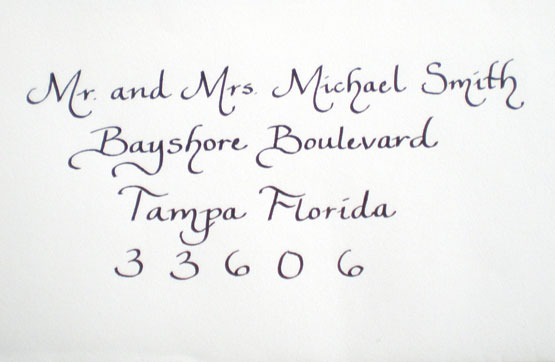 Mr. and Mrs. Michael Smith
Bayshore Boulevard
Tampa Florida
3 3 6 0 6